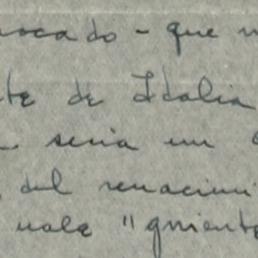 ocado - que
te de Idalia
seria un
del renacimi
vale "gmiento